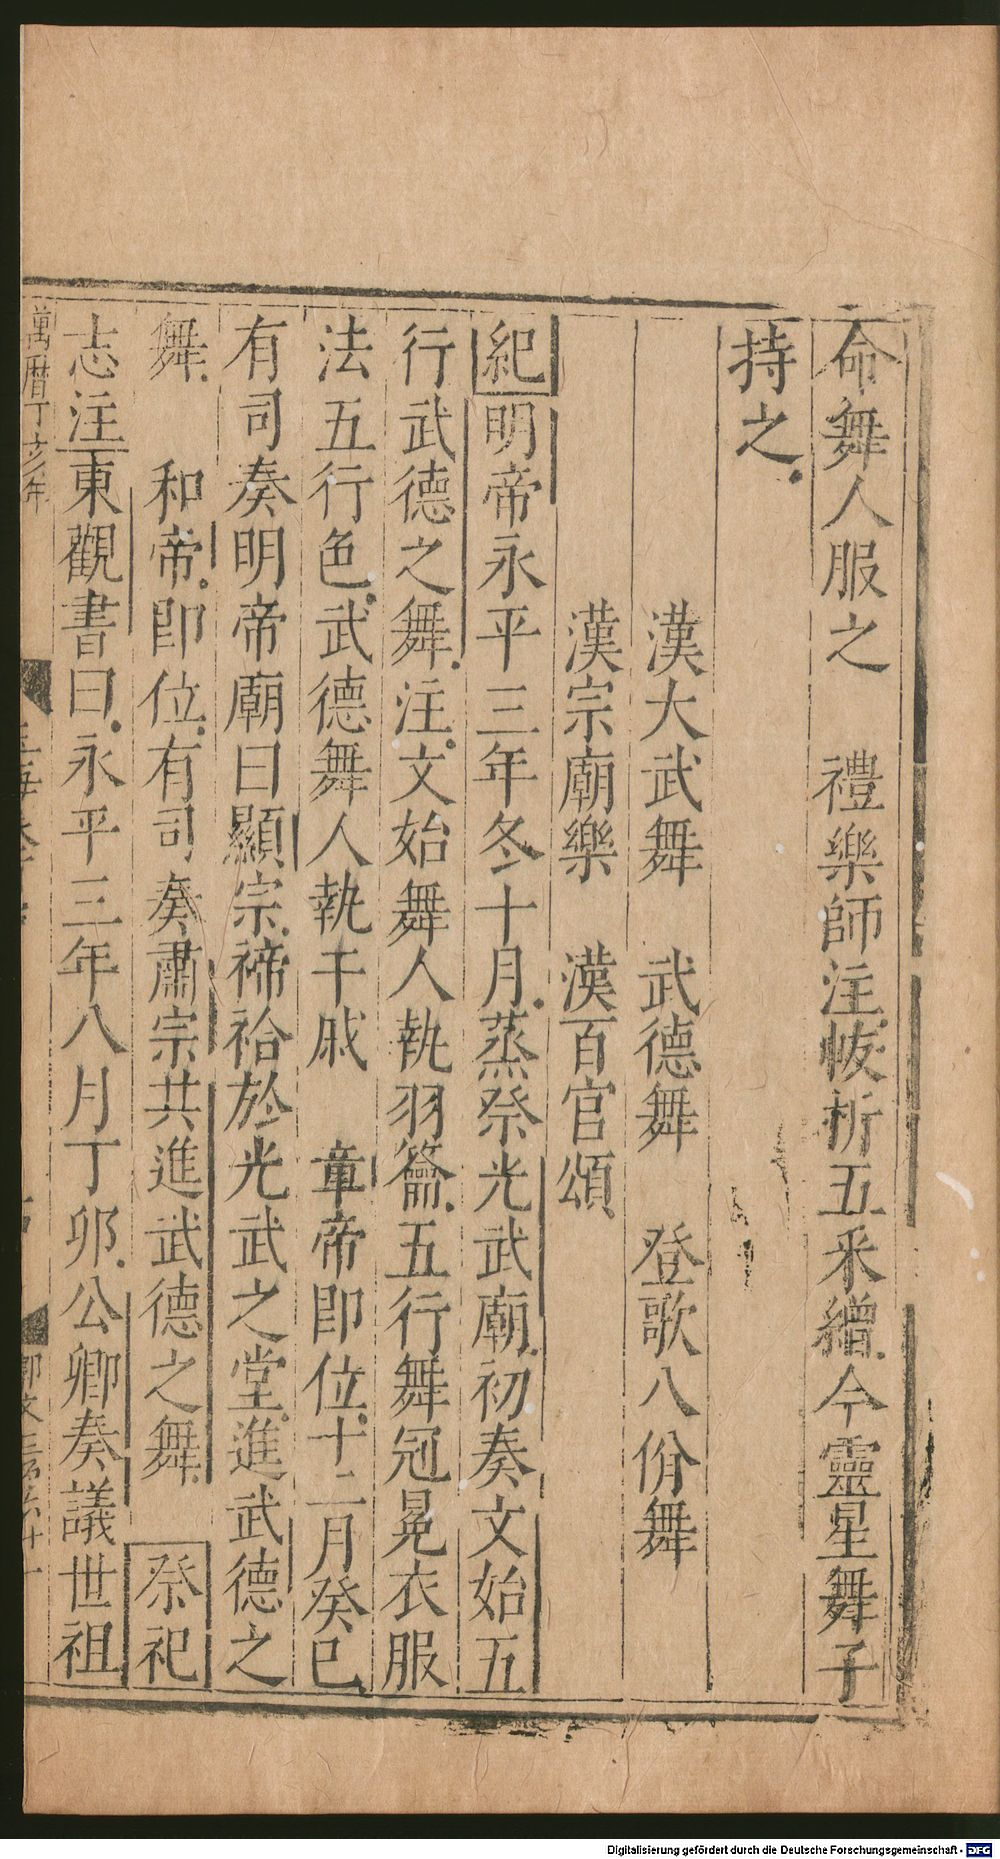 命舞人服之　禮樂師注帗析五采繒今靈星舞子
持之
漢大武舞　武德舞　登歌八佾舞
漢宗廟樂　漢百官頌
紀明帝永平三年冬十月蒸祭光武廟初奏文始五
行武德之舞注文始舞人執羽籥五行舞冠冕衣服
法五行色武德舞人執干戚　章帝即位十二月癸巳
有司奏明帝廟曰顯宗禘祫於光武之堂進武德之
舞　和帝即位有司奏肅宗共進武德之舞　祭祀
志注東觀書曰永平三年八月丁卯公卿奏議世祖
萬曆丁亥年
Digitalisierung gefördert durch die Deutsche Forschungsgemeinschaft - DFG